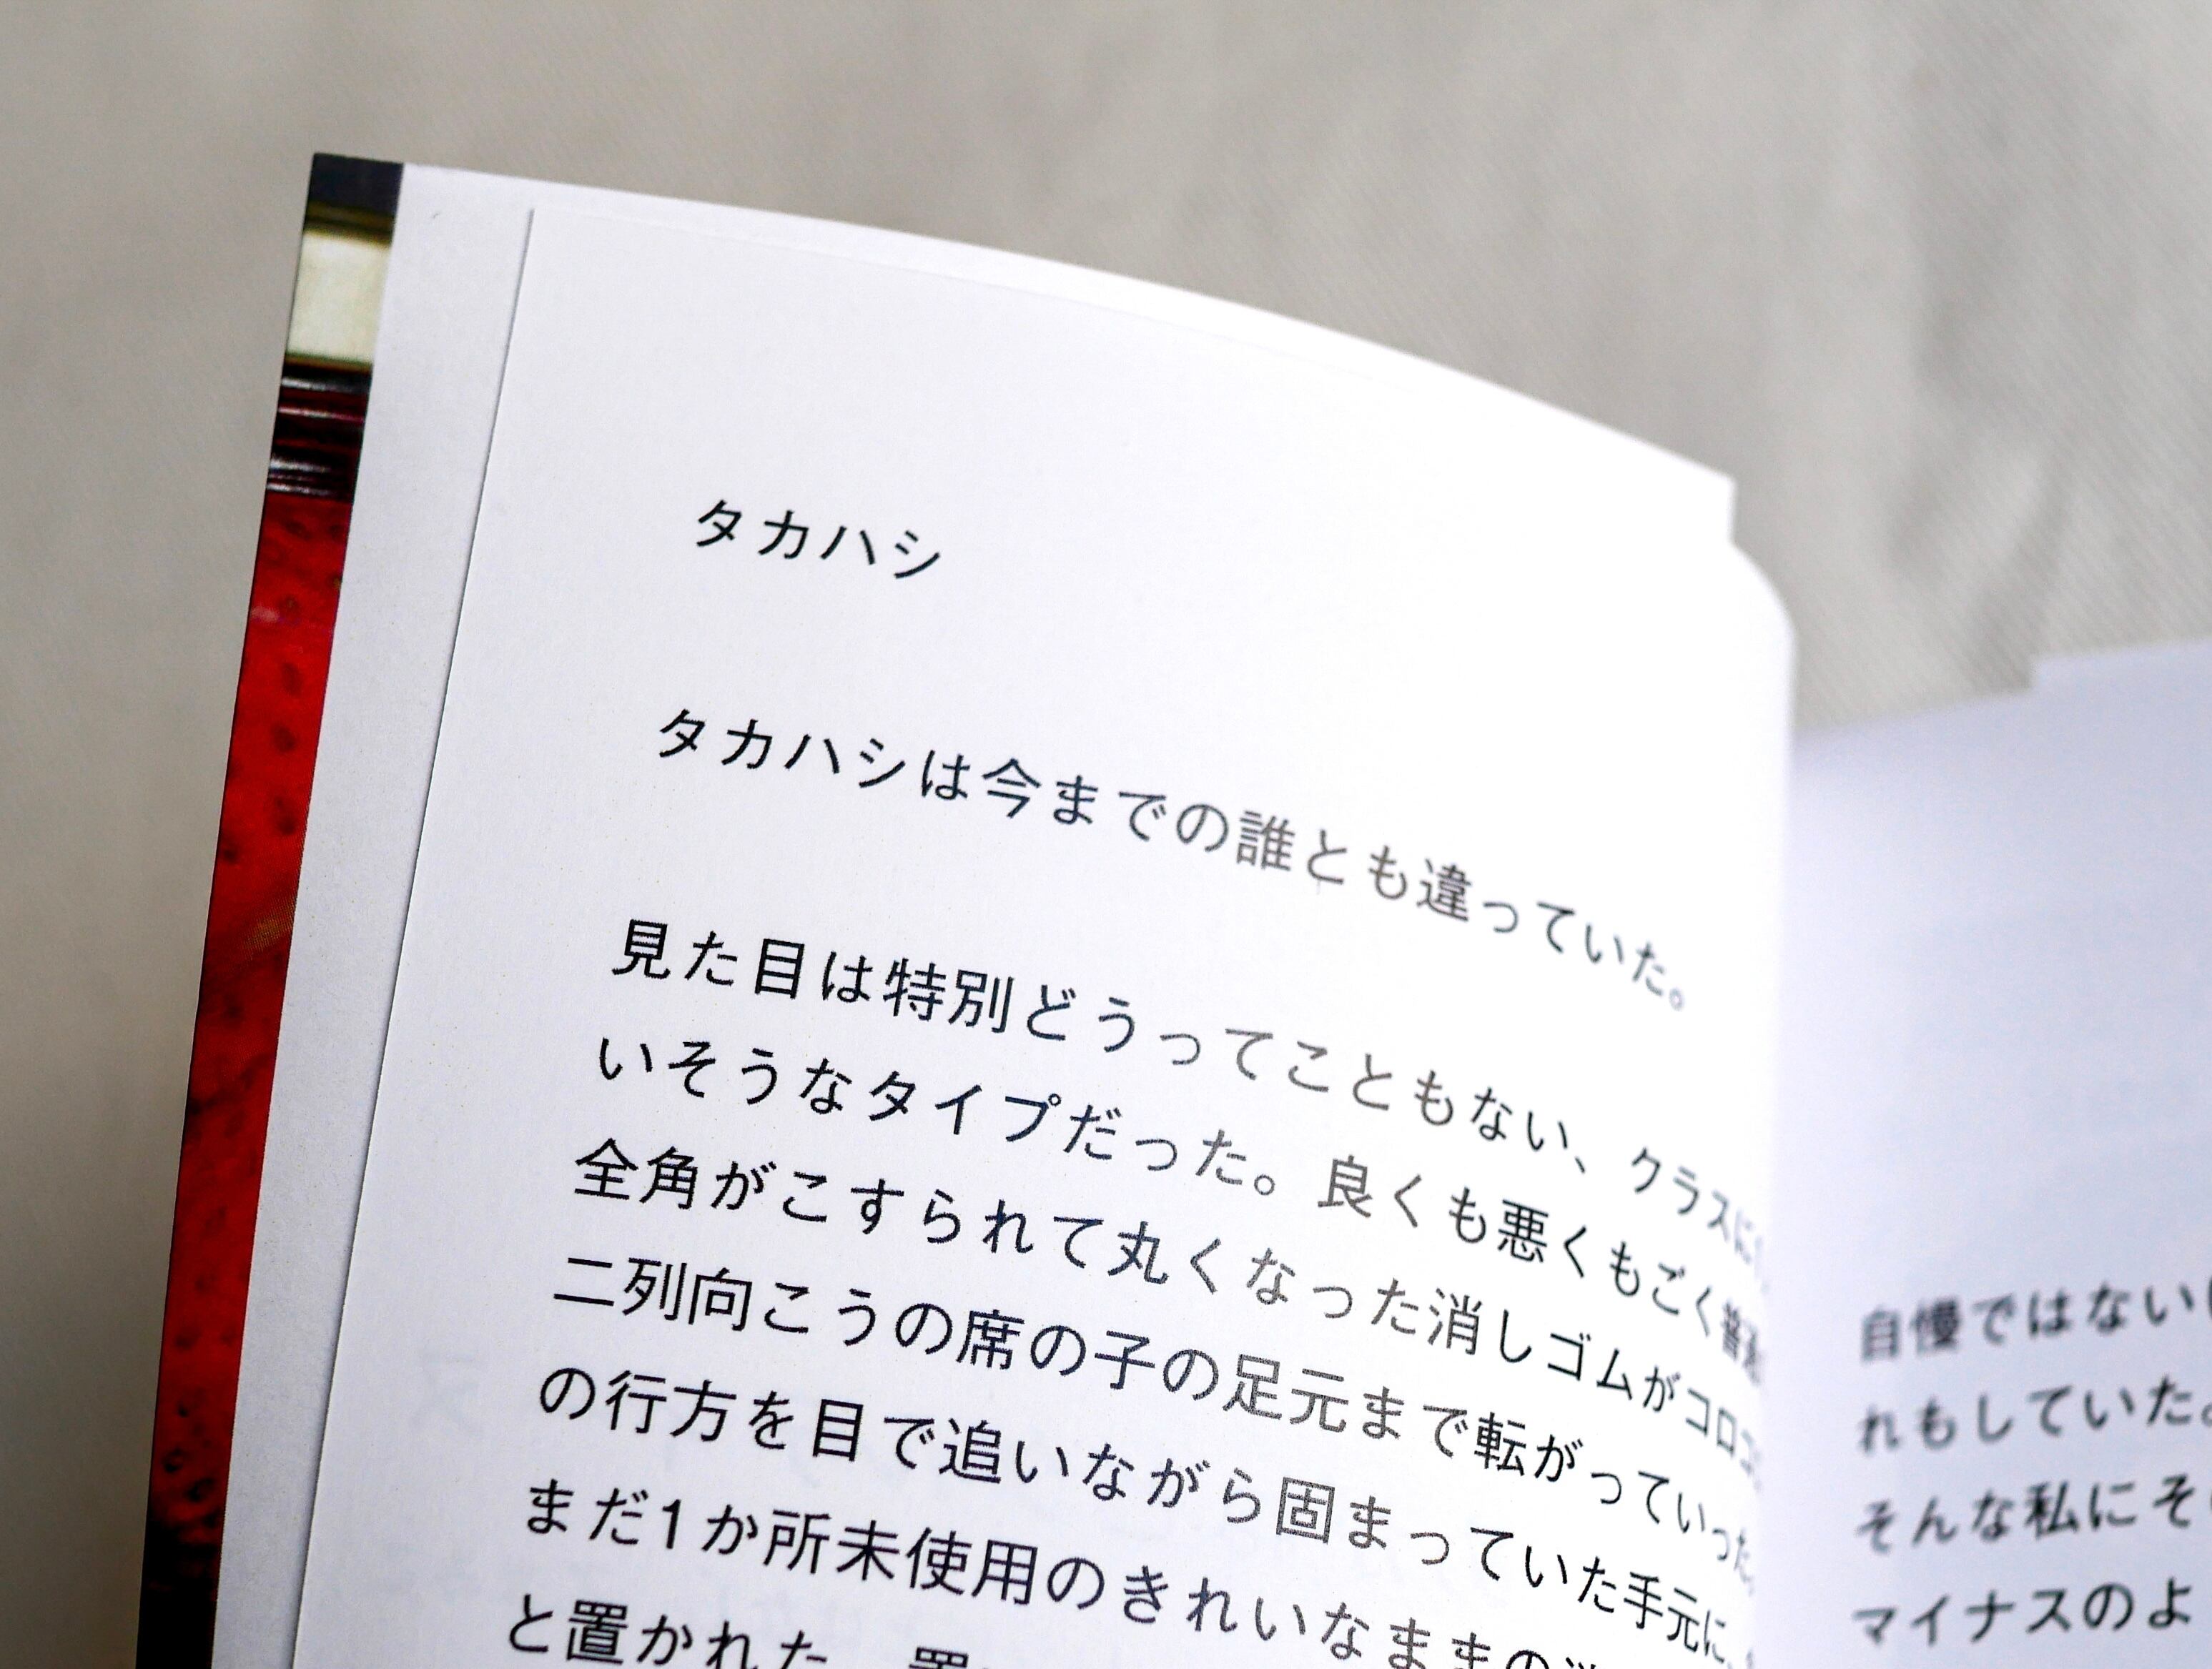 タカハシ
タカハシは今までの誰とも違っていた。
見た目は特別どうってこともない、クラスに
いそうなタイプだった。良くも悪くもごく普通
全角がこすられて丸くなった消しゴムがコロコ
二列向こうの席の子の足元まで転がっていった。
の行方を目で追いながら固まっていた手元に、
まだ1か所未使用のきれいなままの
と置かれた。置
自慢ではない
れもしていた。
そんな私にそ
マイナスのよ